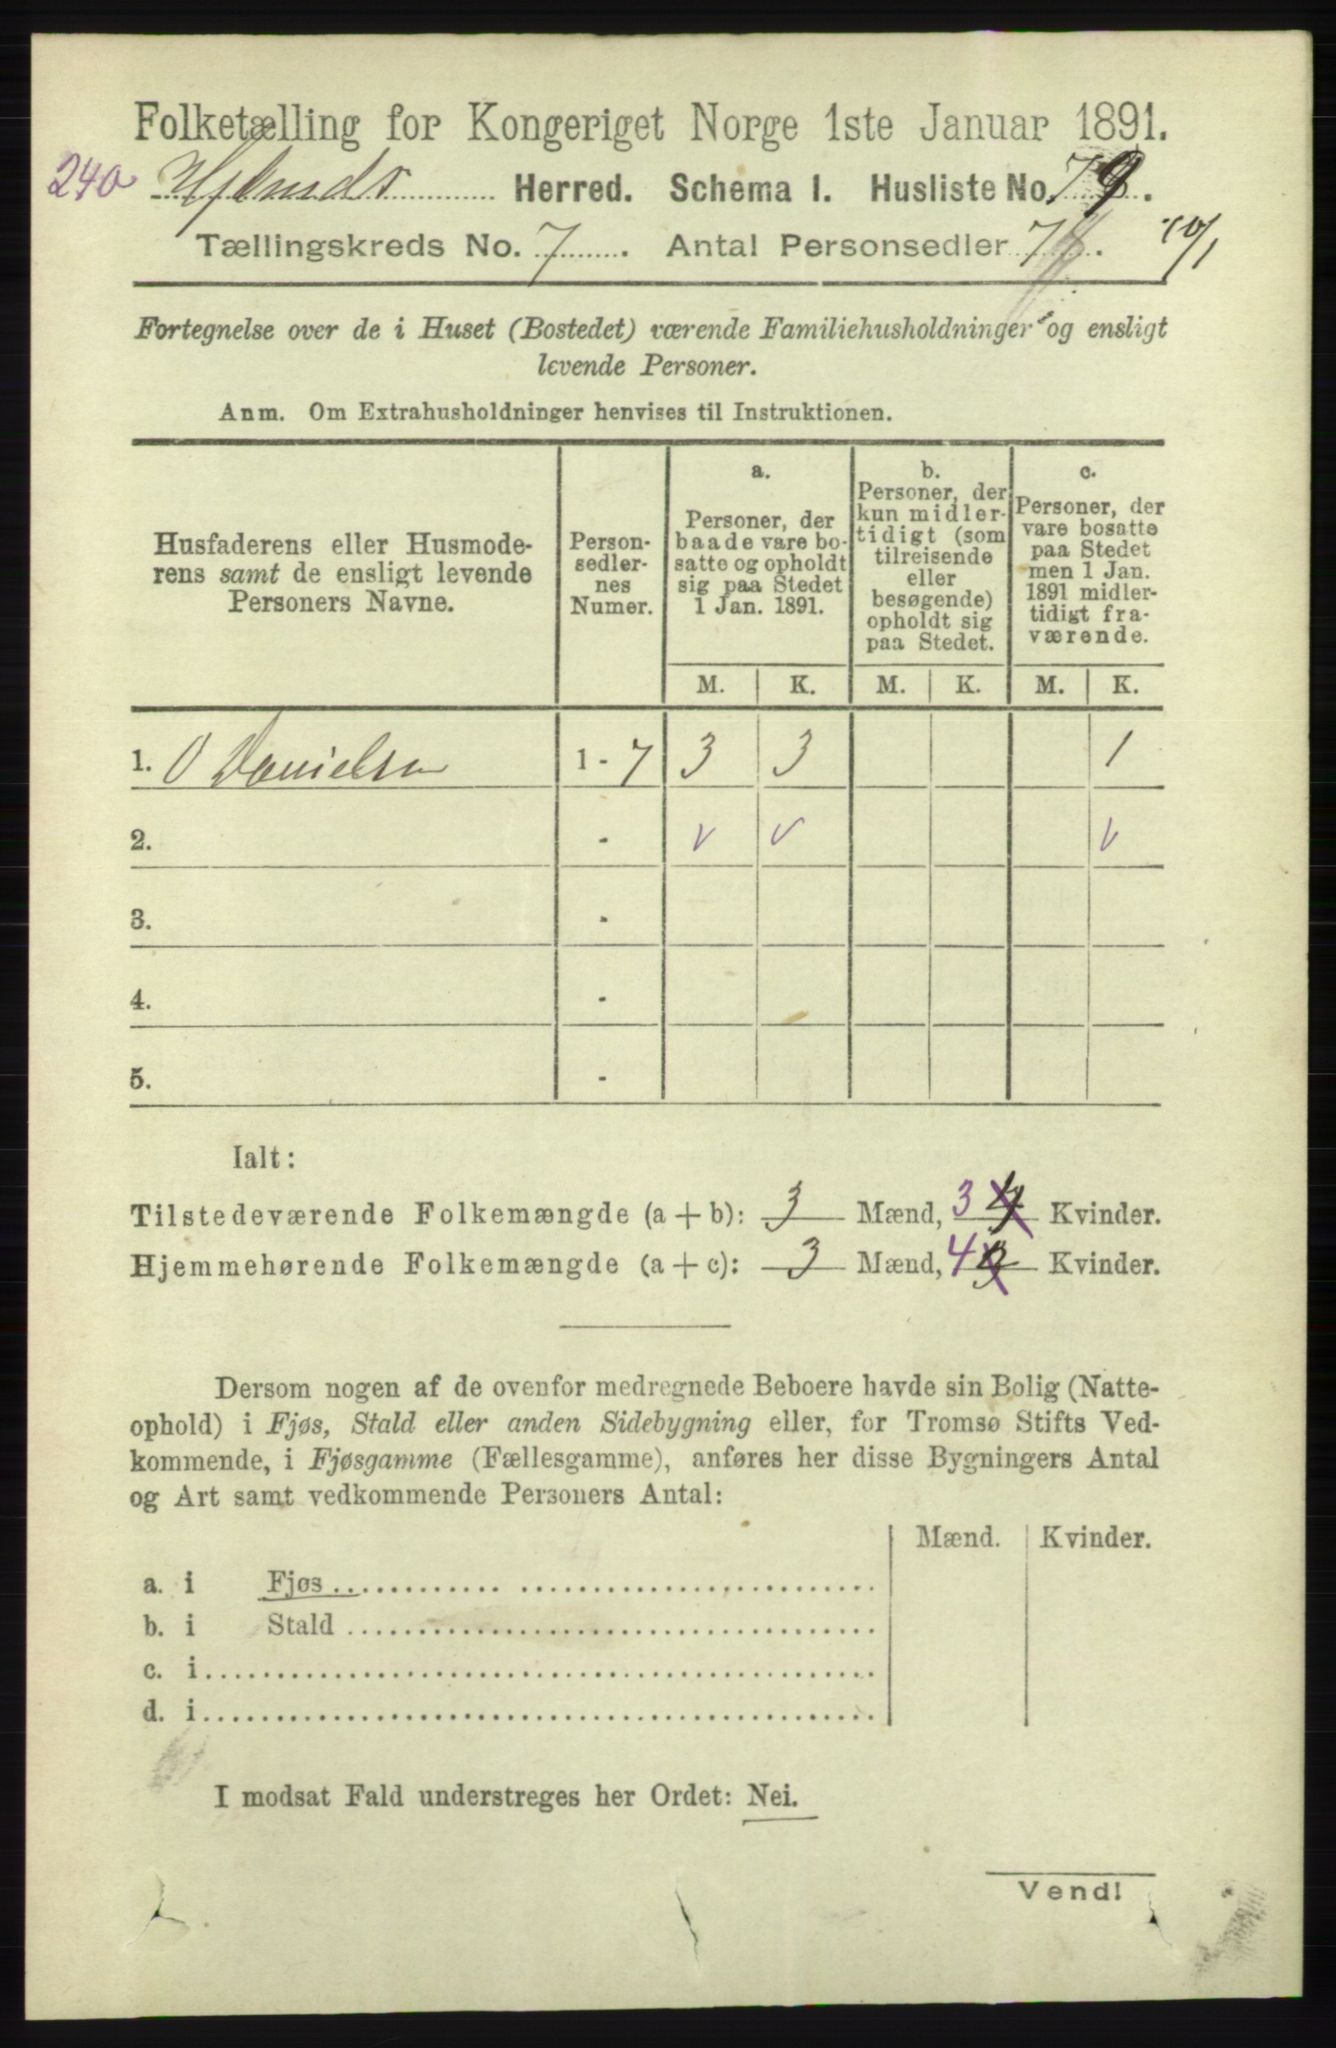 Folketælling for Kongeriget Norge 1ste Januar 1891.
240 Herred. Schema 1. Husliste No. 79.
Tællingskreds No. 7. Antal Personsedler 7. 10/1
Fortegnelse over de i Huset (Bostedet) værende Familiehusholdninger og ensligt
levende Personer.
Anm. Om Extrahusholdninger henvises til Instruktionen.
Husfaderens eller Husmode-
rens samt de ensligt levende
Personers Navne.
Person-
sedler-
nes
Numer.
a.
Personer, der
baade vare bo-
satte og opholdt
sig paa Stedet
1 Jan. 1891.
b.
Personer, der
kun midler-
tidigt (som
tilreisende
eller
besøgende)
opholdt sig
paa Stedet.
c.
Personer, der
vare bosatte
paa Stedet
men 1 Jan.
1891 midler-
tidigt fra-
værende.
M. K. M. K. M. K.
1. O Danielsen 1 - 7 3 3 1
2. - v v v
3. -
4. -
5. -
Ialt:
Tilstedeværende Folkemængde (a + b): 3 Mænd, 3 4 Kvinder.
Hjemmehørende Folkemængde (a + c): 3 Mænd, 4 3 Kvinder.
Dersom nogen af de ovenfor medregnede Beboere havde sin Bolig (Natte-
ophold) i Fjøs, Stald eller anden Sidebygning eller, for Tromsø Stifts Ved-
kommende, i Fjøsgamme (Fællesgamme), anføres her disse Bygningers Antal
og Art samt vedkommende Personers Antal:
Mænd. Kvinder.
a. i Fjøs
b. i Stald
c. i
d. i
I modsat Fald understreges her Ordet: Nei.
Vend!